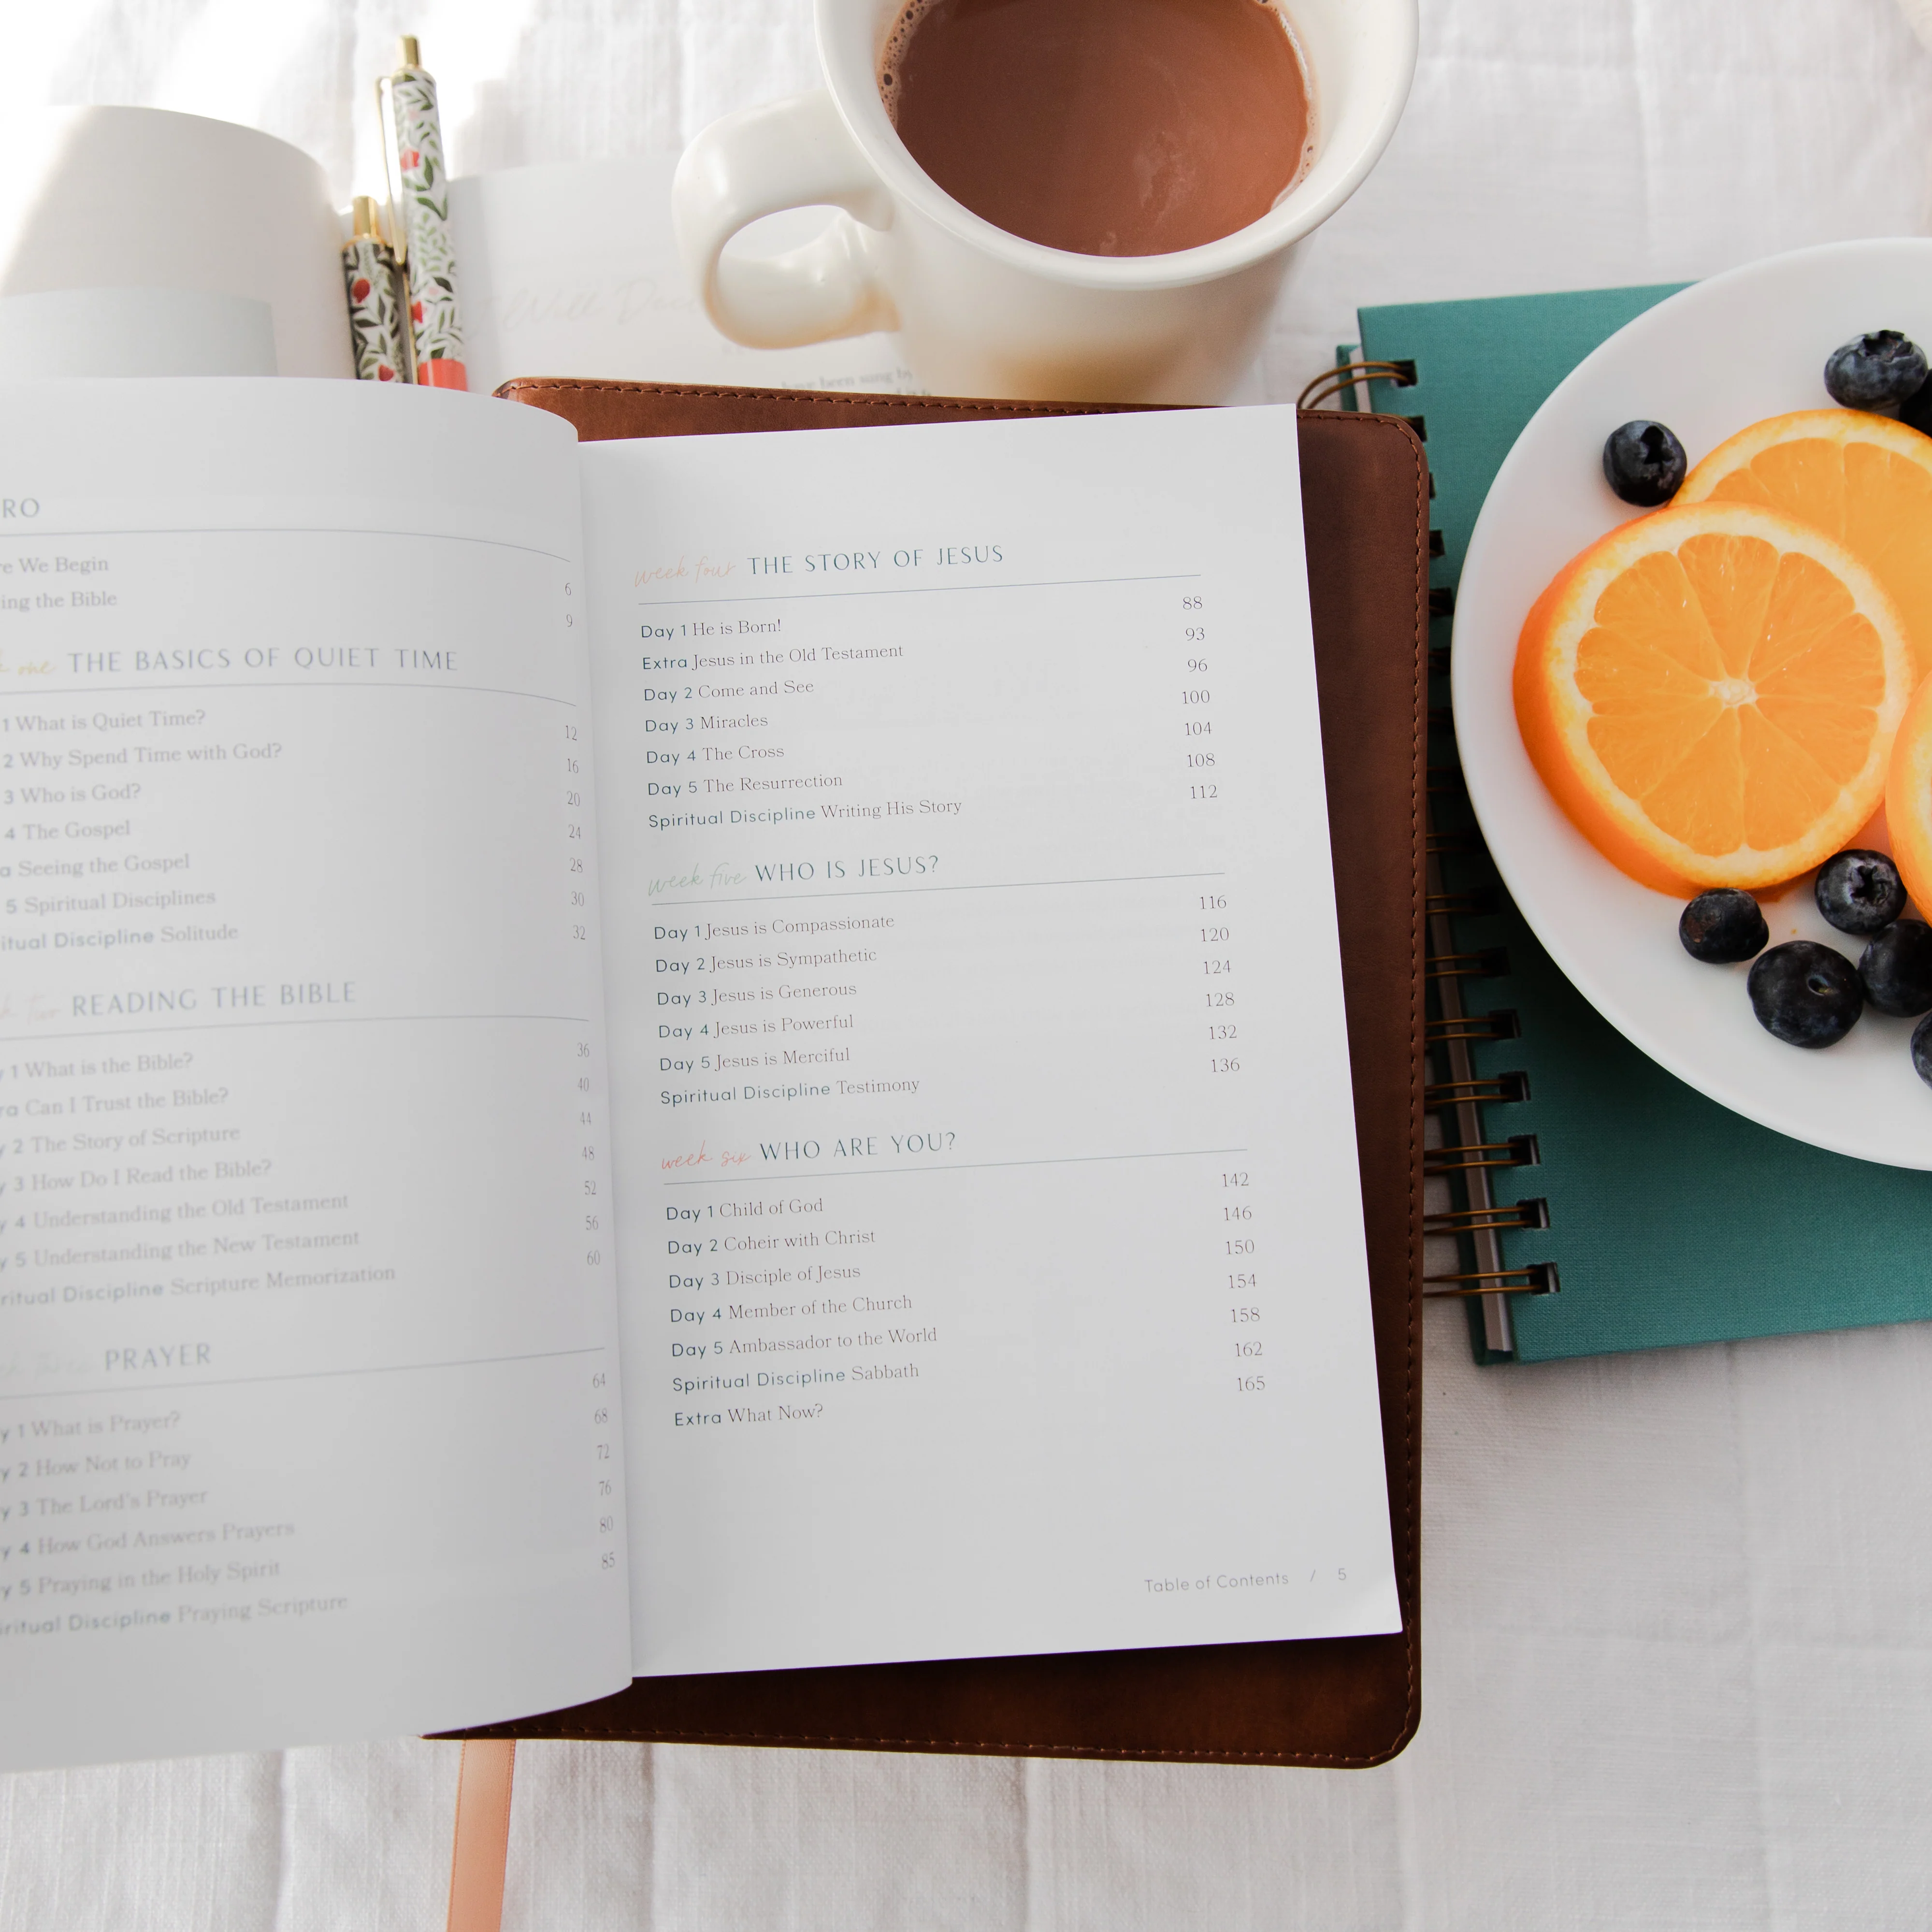 Will
have been sung by
RO
re We Begin 6
ing the Bible 9
one THE BASICS OF QUIET TIME
1 What is Quiet Time? 12
2 Why Spend Time with God? 16
3 Who is God? 20
4 The Gospel 24
a Seeing the Gospel 28
5 Spiritual Disciplines 30
itual Discipline Solitude 32
k two READING THE BIBLE
y 1 What is the Bible? 36
ra Can I Trust the Bible? 40
y 2 The Story of Scripture 44
y 3 How Do I Read the Bible? 48
y 4 Understanding the Old Testament 52
y 5 Understanding the New Testament 56
ritual Discipline Scripture Memorization 60
PRAYER
y 1 What is Prayer? 64
y 2 How Not to Pray 68
y 3 The Lord's Prayer 72
y 4 How God Answers Prayers 76
y 5 Praying in the Holy Spirit 80
iritual Discipline Praying Scripture 85
week four THE STORY OF JESUS
Day 1 He is Born! 88
Extra Jesus in the Old Testament 93
Day 2 Come and See 96
Day 3 Miracles 100
Day 4 The Cross 104
Day 5 The Resurrection 108
Spiritual Discipline Writing His Story 112
week five WHO IS JESUS?
Day 1 Jesus is Compassionate 116
Day 2 Jesus is Sympathetic 120
Day 3 Jesus is Generous 124
Day 4 Jesus is Powerful 128
Day 5 Jesus is Merciful 132
Spiritual Discipline Testimony 136
week six WHO ARE YOU?
Day 1 Child of God 142
Day 2 Coheir with Christ 146
Day 3 Disciple of Jesus 150
Day 4 Member of the Church 154
Day 5 Ambassador to the World 158
Spiritual Discipline Sabbath 162
Extra What Now? 165
Table of Contents / 5